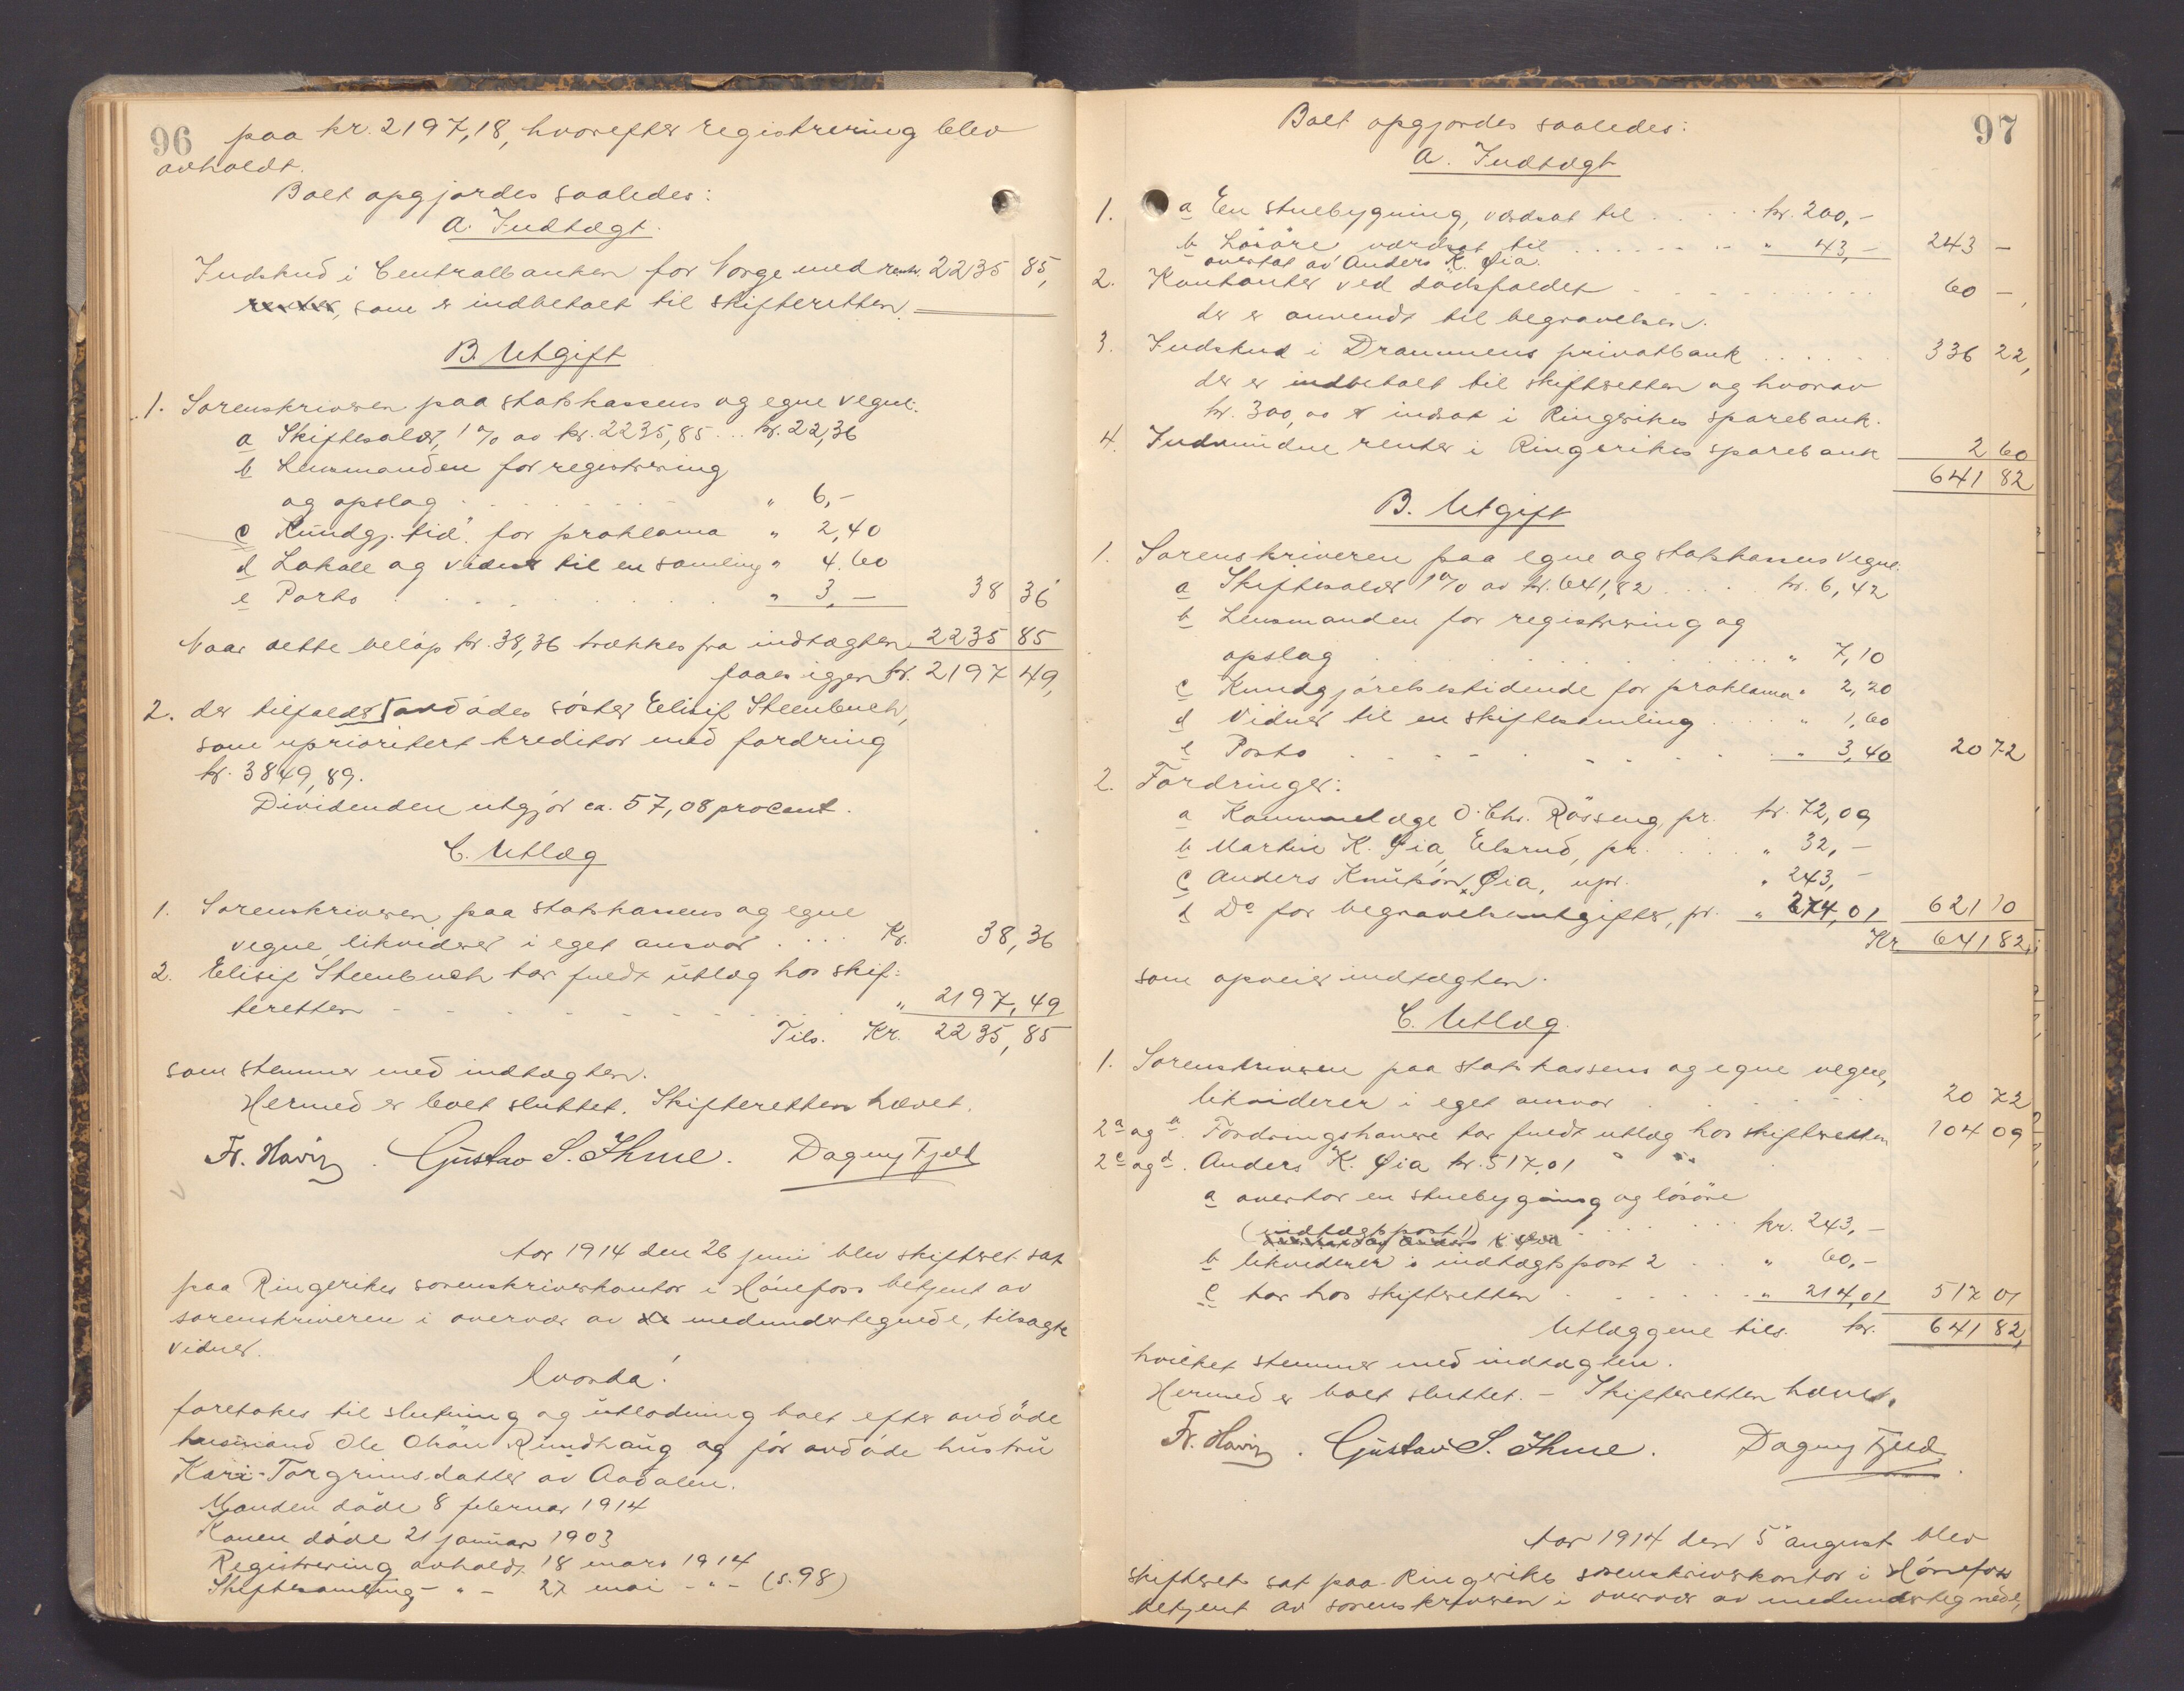 96
paa kr. 2197,18, hvorefter registrering blev
avholdt.
Boet opgjordes saaledes:
A. Indtægt.
Indskud i Centralbanken for Norge med rentr. 2235 85,
renter, som er indbetalt til skifteretten.
B. Utgift
1. Sorenskriveren paa statskassens og egne vegne:
a Skiftesalær, 1% av kr. 2235,85 ... kr. 22,36
b Lensmanden for registrering
og opslag . . . " 6,-
c Kundgj. tid. for proklama " 2,40
d Lokale og vidner til en samling " 4.60
e Porto . . . " 3,- 38 36
Naar dette beløp kr. 38,36 trækkes fra indtægten 2235 85
faaes igjen kr. 2197 49,
2. der tilfalder avdødes søster Elisif Steenbuch,
som uprioritert kreditor med fordring
kr. 3849,89.
Dividenden utgjør ca. 57,08 procent.
C. Utlæg
1. Sorenskriveren paa statskassens og egne
vegne, likviderer i eget ansvar .... Kr. 38,36
2. Elisif Steenbuch har fuldt utlæg hos skif-
teretten - - - " 2197,49
Tils. Kr. 2235,85
som stemmer med indtægten.
Hermed er boet sluttet. Skifteretten hævet.
Fr. Gustav S. Ihme. Dagny Fjeld
Aar 1914 den 26 juni blev skifteret sat
paa Ringerikes sorenskriverkontor i Hønefoss betjent av
sorenskriveren i overvær av medundertegnede, tilsagte
vidner.
Hvorda!
foretokes til slutning og utlodning boet efter avdøde
husmand Ole Rundhaug og før avdøde hustru
Kari Torgrimsdatter av Aadalen.
Manden døde 8 februar 1914
Konen døde 21 januar 1903
Registrering avholdt 18 mars 1914
Skiftesamling - " - 27 mai - " - (s. 98)
97
Boet opgjordes saaledes:
A. Indtægt
1. a En stuebygning, værdsat til . . . . kr. 200,-
b Løsøre værdsat til . . . . " 43,- 243 -
overtat av Anders K. Øia.
2. Kontanter ved dødsfaldet . . . 60 -,
der er anvendt til begravelsen.
3. Indskud i Drammens privatbank . . . . 336 22,
der er indbetalt til skifteretten og hvorav
kr. 300,00 er indsat i Ringerikes sparebank.
4. Indvundne renter i Ringerikes sparebank 2 60
641 82
B. Utgift
1. Sorenskriveren paa egne og statskassens vegne:
a Skiftesalær 1% av kr. 641,82 . . . . kr. 6,42
b Lensmanden for registrering og
opslag . . . . " 7,10
c Kundgjørelsestidende for proklama " 2,20
d Vidner til en skiftesamling . . . " 1,60
e Porto - - - - " 3,40 20 72
2. Fordringer:
a Kommunelæge O. Chr. Røsseng, pr. kr. 72,09
b Martin K. Øia, Elsrud, pr. . . . " 32,-
c Anders Knutsøn Øia, upr. " 243,-
d Do for begravelsesutgifter, pr. " 274,01 621 10
Kr. 641 82,
som opveier indtægten.
C. Utlæg.
1. Sorenskriveren paa statskassens og egne vegne,
likviderer i eget ansvar . . . . 20 72
2a og b. Fordringshavere har fuldt utlæg hos skifteretten 104 09
2c og d. Anders K. Øia kr. 517,01 " "
a overtar en stuebygning og løsøre
(indtægtspost 1) . . . . kr. 243,-
b likviderer i indtægtspost 2 . . " 60,-
c har hos skifteretten . . . . " 214,01 517 01
Utlæggene tils. kr. 641 82,
hvilket stemmer med indtægten.
Hermed er boet sluttet. - Skifteretten hævet.
Fr. Gustav S. Ihme. Dagny Fjeld.
Aar 1914 den 5 august blev
skifteret sat paa Ringerikes sorenskriverkontor i Hønefoss
betjent av sorenskriveren i overvær av medundertegnede,